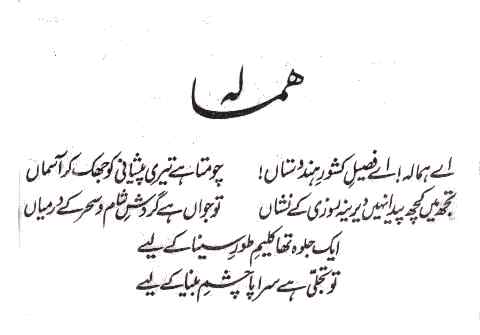 ہمالہ
اے ہمالہ! اے فصیلِ کشورِ ہندوستاں! چومتا ہے تیری پیشانی کو جھک کر آسماں
تجھ میں کچھ پیدا نہیں دیرینہ روزی کے نشاں تو جواں ہے گردشِ شام و سحر کے درمیاں
ایک جلوہ تھا کلیمِ طورِ سینا کے لیے
تو تجلی ہے سراپا چشمِ بینا کے لیے